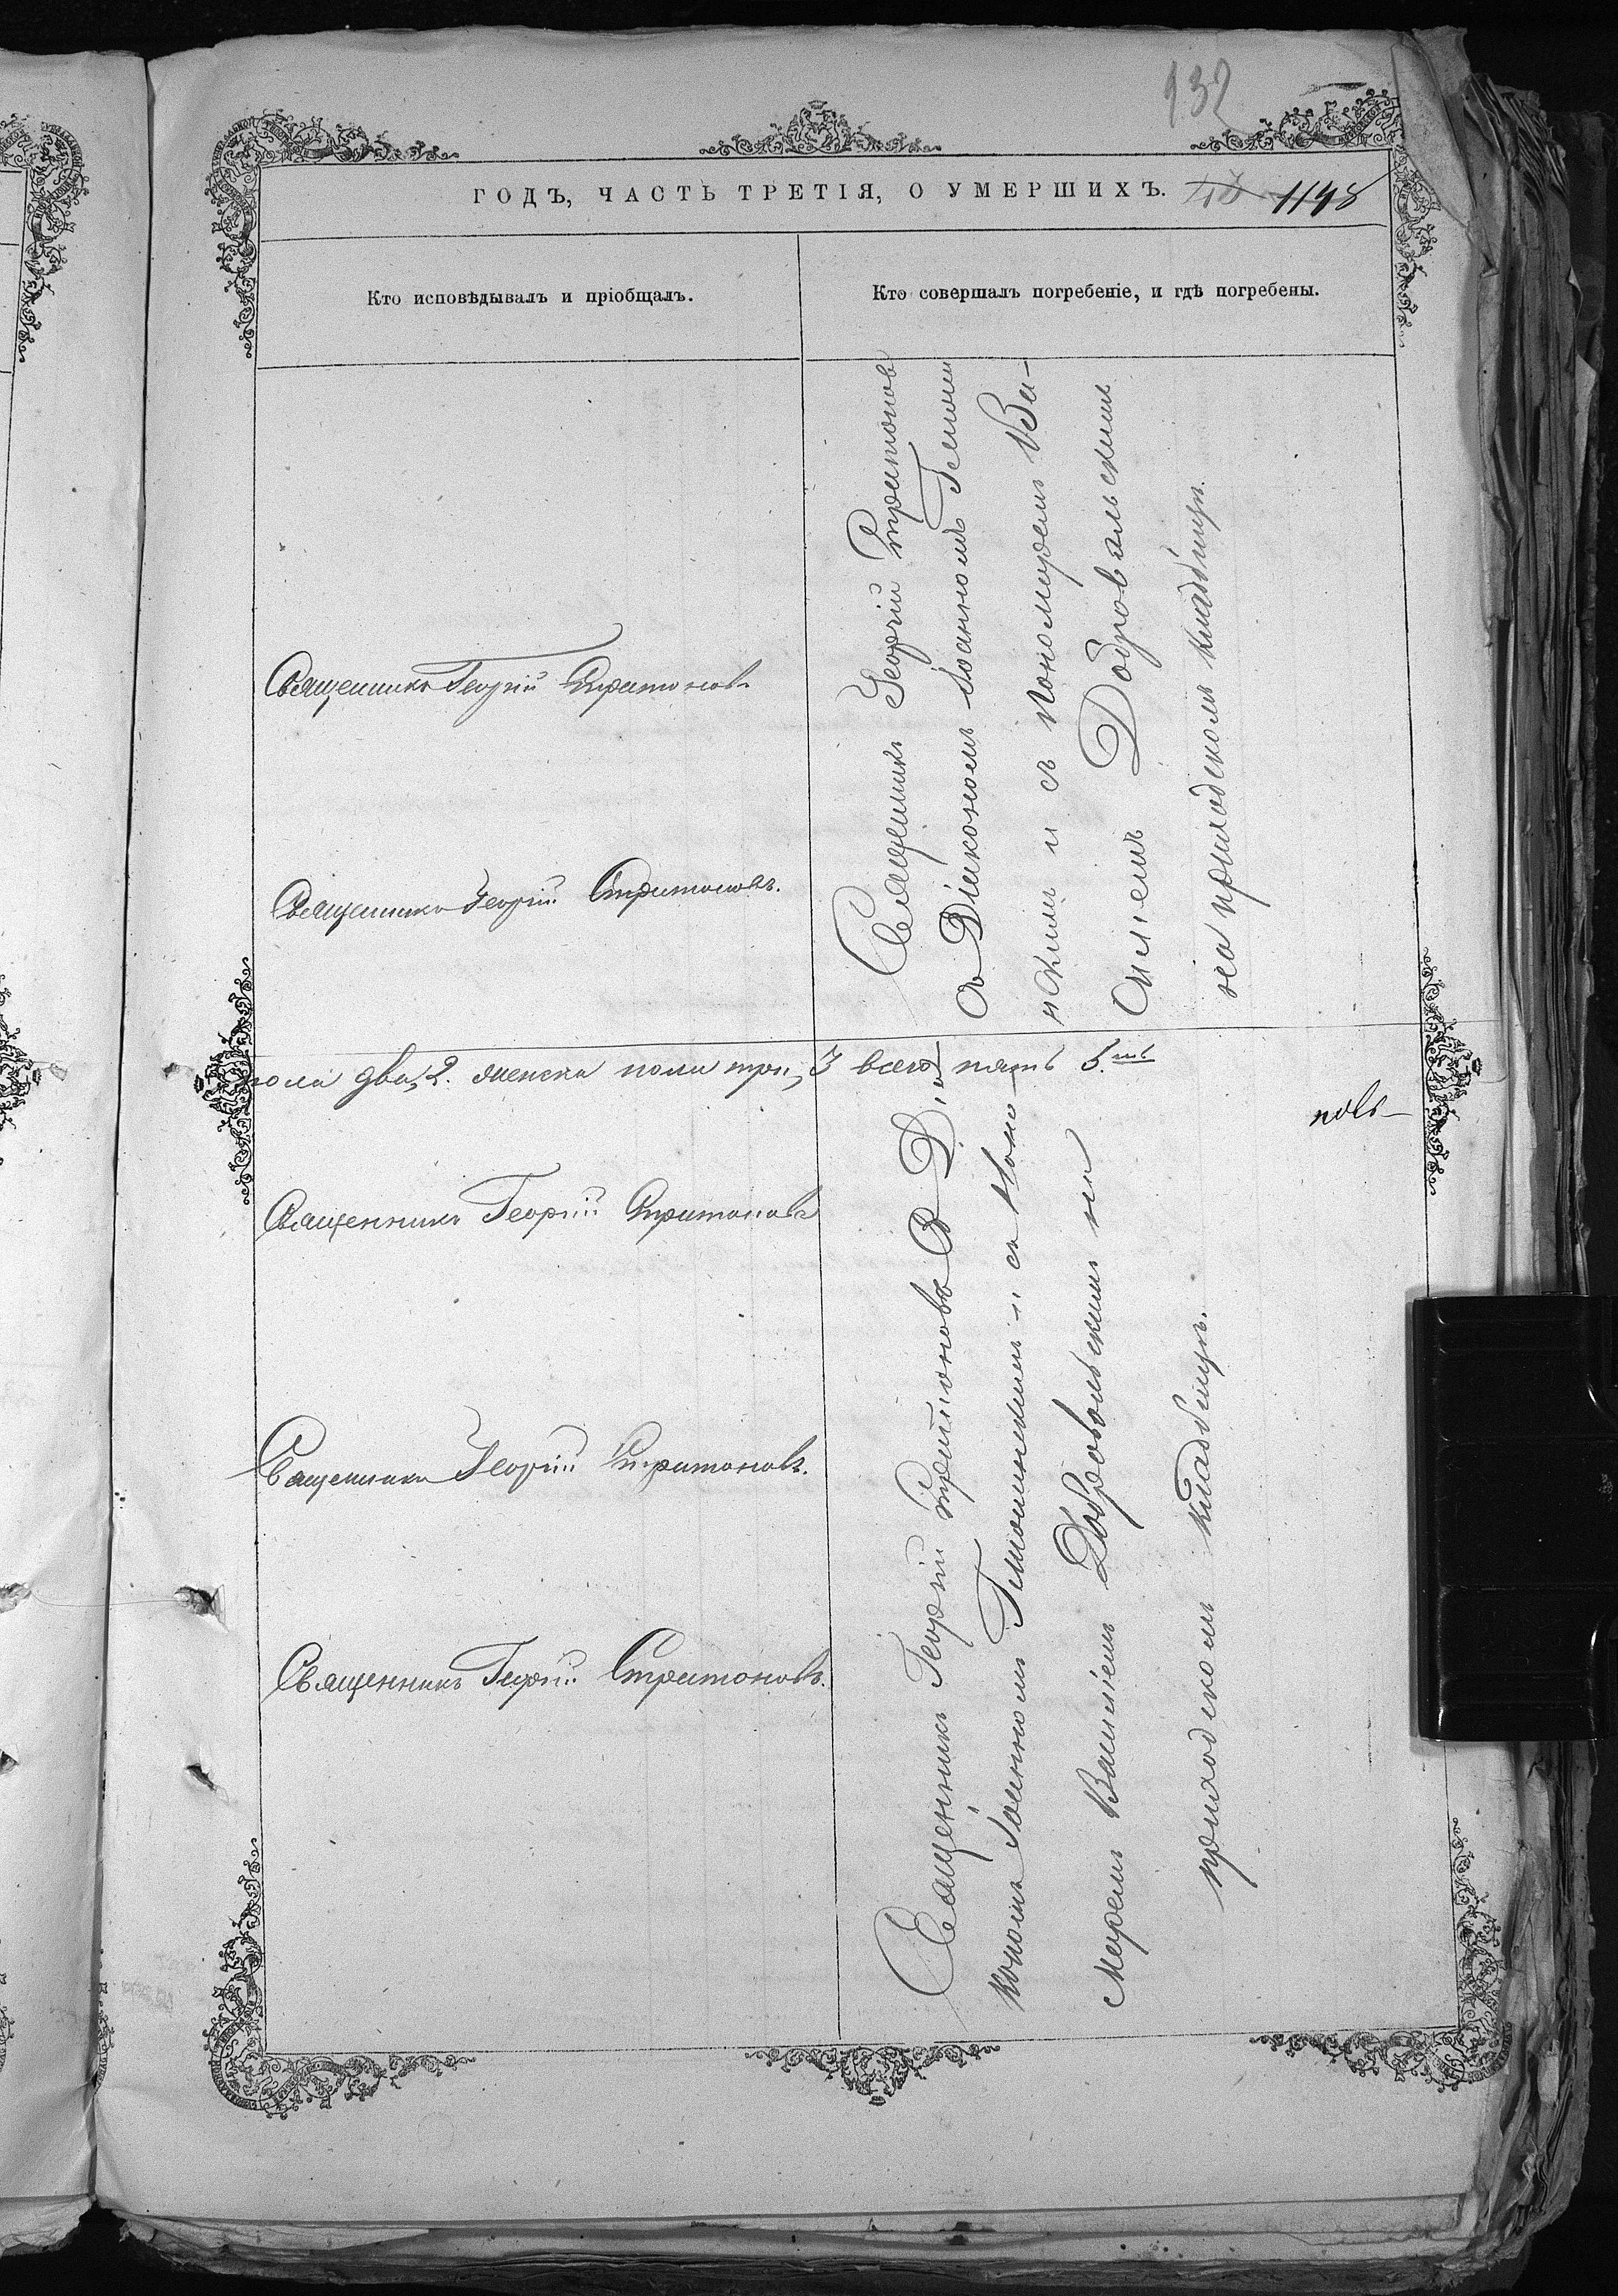 132
ГОДЪ, ЧАСТЬ ТРЕТІЯ, О УМЕРШИХЪ. 1148
Кто исповѣдывалъ и пріобщалъ.
Кто совершалъ погребеніе, и гдѣ погребены.
Священникъ Георгій Стратоновъ
Священникъ Георгій Стратоновъ.
Священникъ Георгій Стратоновъ
съ Діакономъ Іоанномъ
и съ Пономаремъ Ва-
силіемъ Добровольскимъ
на приходскомъ кладбищѣ.
пола два, 2. женска пола три, 3 всего пять 5.ть
Священникъ Георгій Стратоновъ
Священникъ Георгій Стратоновъ.
Священникъ Георгій Стратоновъ.
Священникъ Георгій Стратоновъ съ Діа
кономъ Іоанномъ и съ Поно-
маремъ Василіемъ Добровольскимъ на
приходскомъ кладбищѣ.
новъ